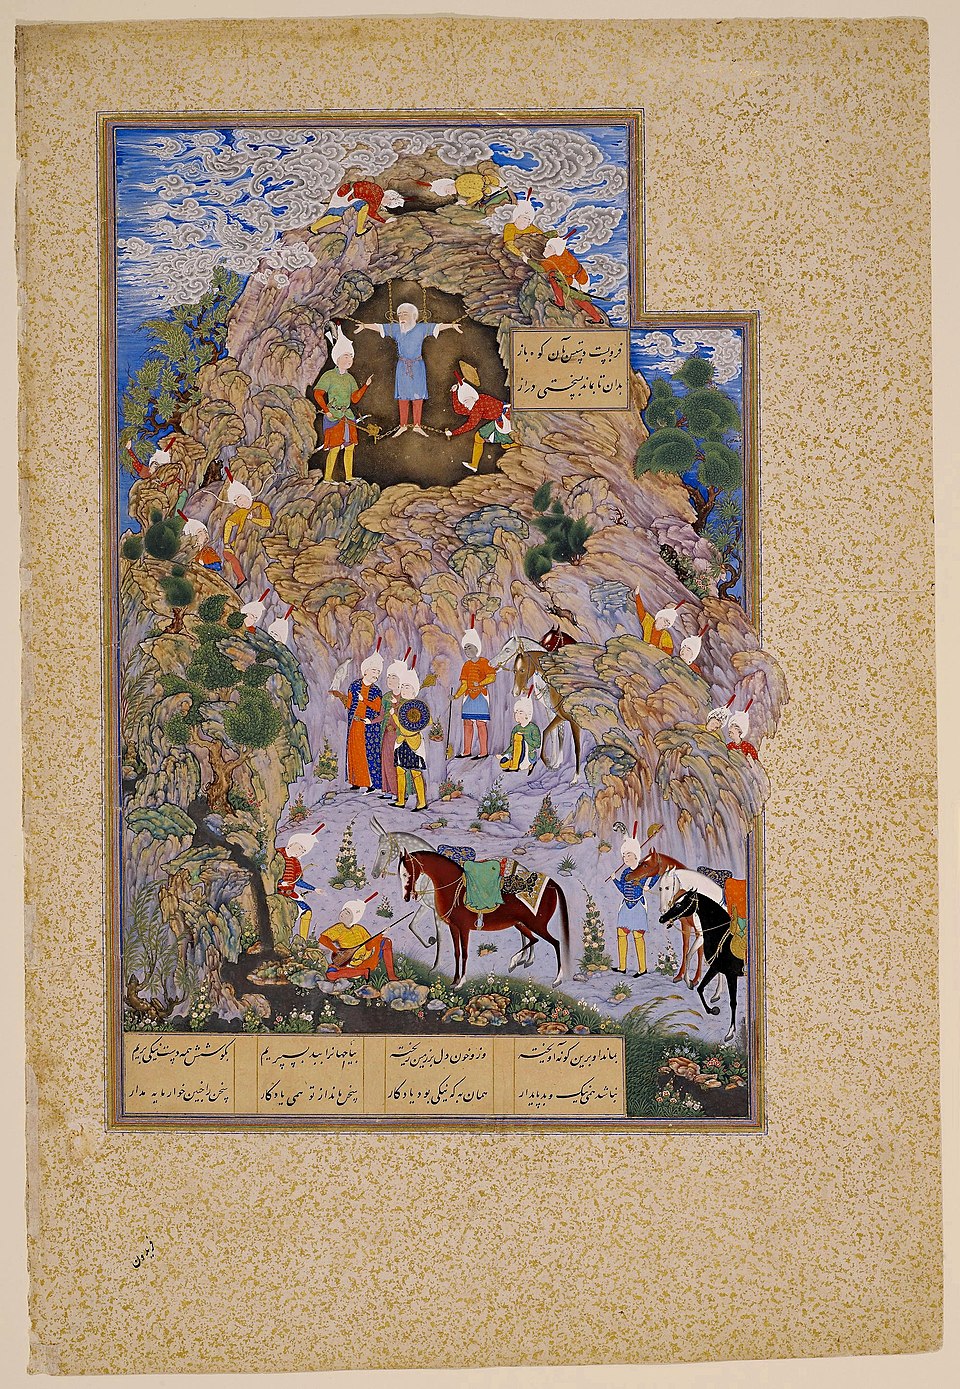 فروبست دستش بآن کوه باز
بدان تا بماند بسختی دراز
بماند او برین گونه آویخته وزو خون دل بر زمین ریخته بیا تا جهانرا ببد نسپریم بکوشش همه دست نیکی بریم
نباشد همی نیک و بد پایدار همان به که نیکی بود یادگار سخن ماند از تو همی یادگار سخن را چنین خوار مایه مدار
فریدون